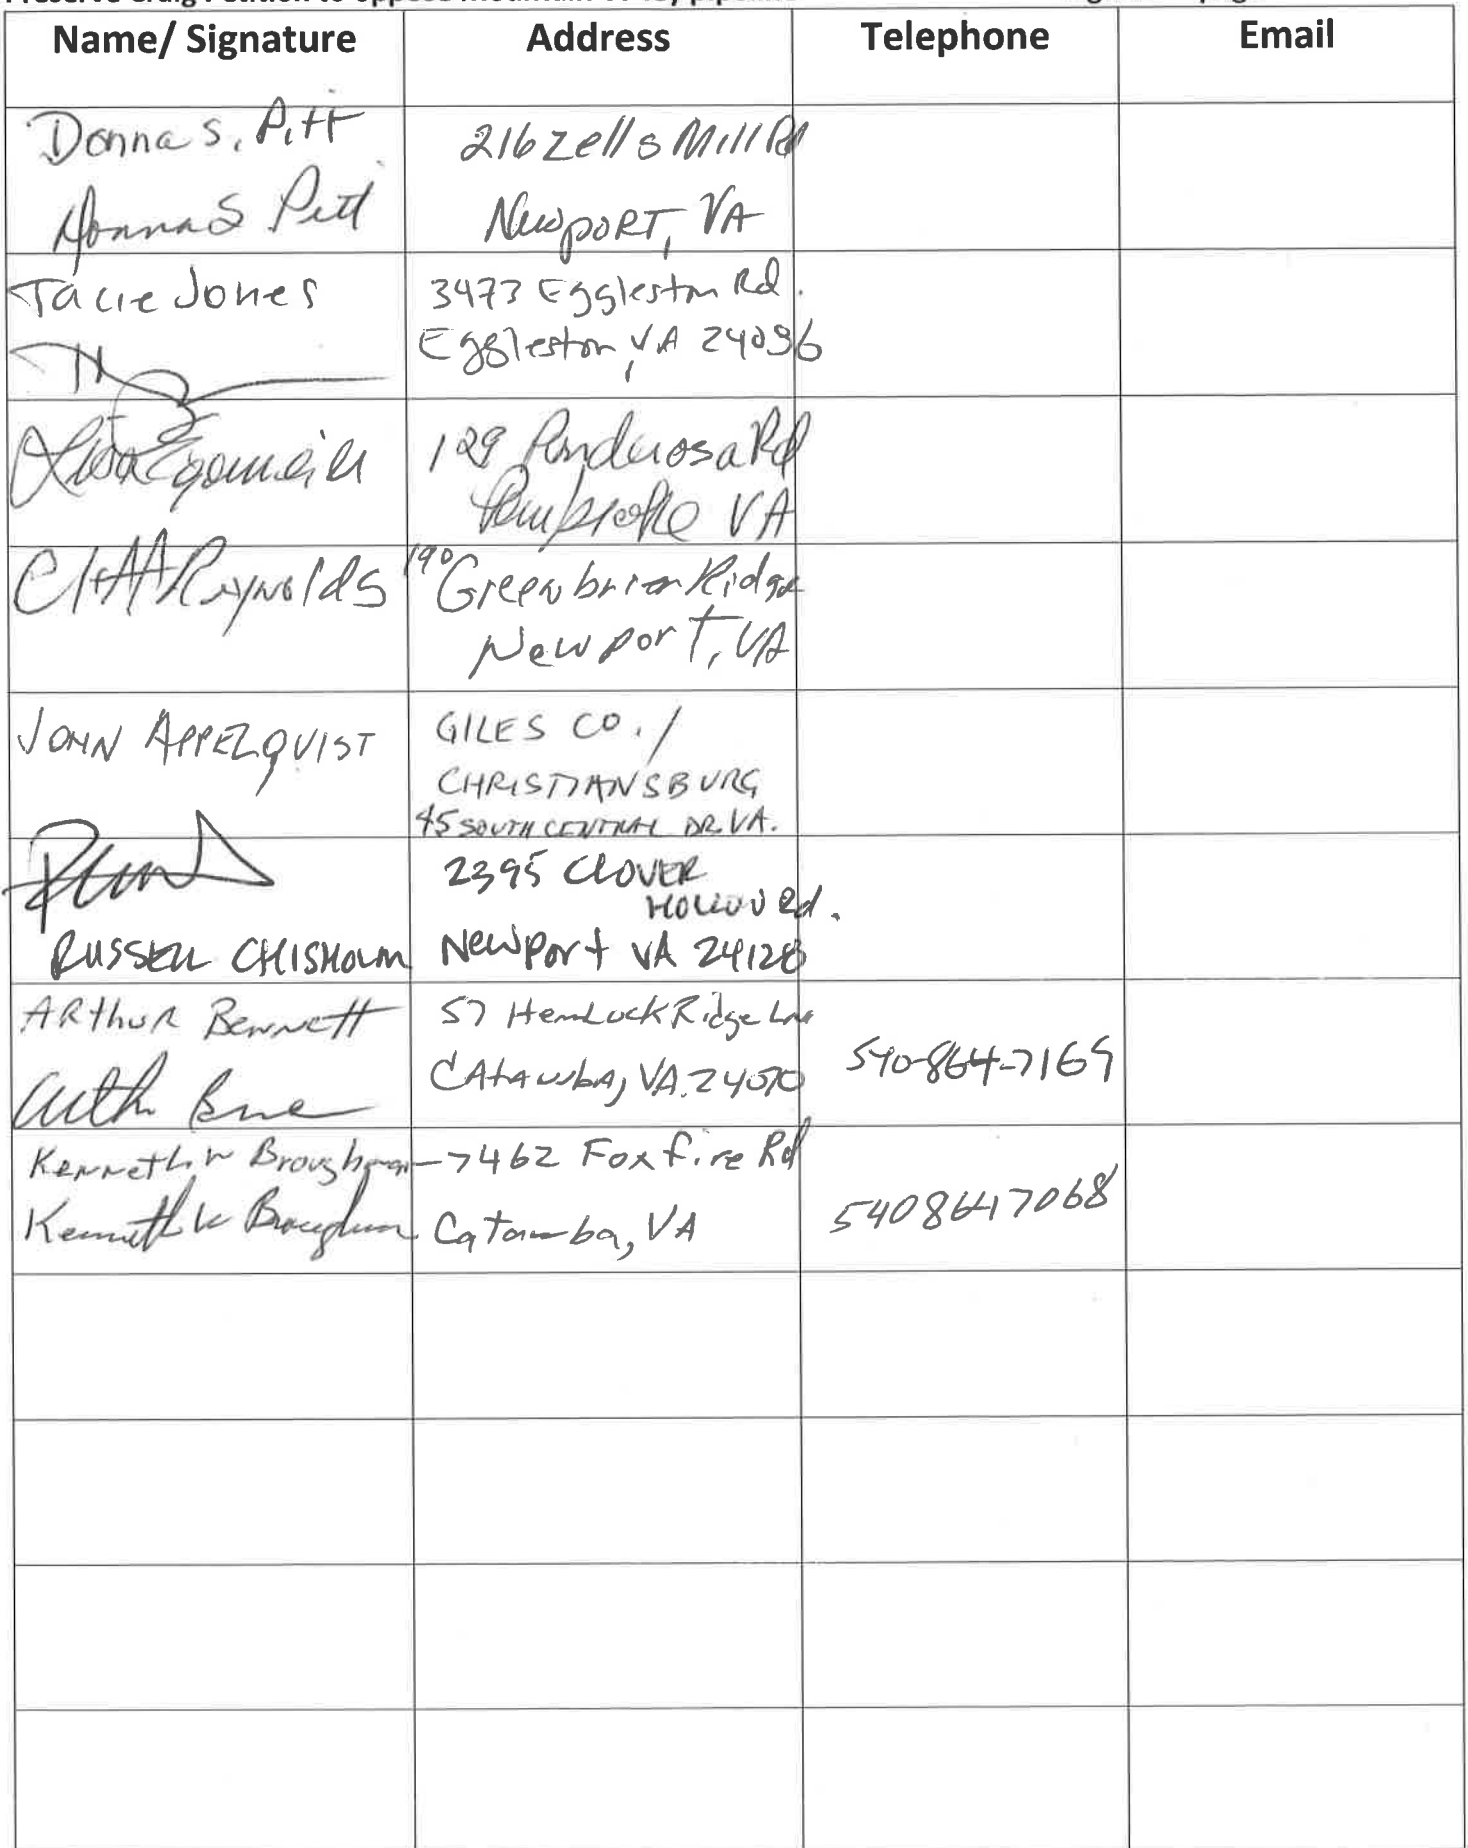 Name/ Signature Address Telephone Email
Donna S. Pitt
Donna S Pitt
216 Zells Mill Rd
Newport, VA
Tacie Jones
3473 Eggleston Rd.
Eggleston, VA 24086
Lisa
129 Ponderosa Rd
Pembroke VA
Cliff Reynolds
190 Greenbrier Ridge
Newport, VA
JOHN APPELQUIST
GILES CO. /
CHRISTIANSBURG
45 SOUTH CENTRAL DR. VA.
RUSSELL CHISHOLM
2395 CLOVER
HOLLOW Rd.
Newport VA 24128
ARthuR Bennett
57 Hemlock Ridge Ln
CAtawbA, VA. 24070
540-864-7169
Kenneth W Broughman
Kenneth W Broughman
7462 Foxfire Rd
Catawba, VA
5408647068